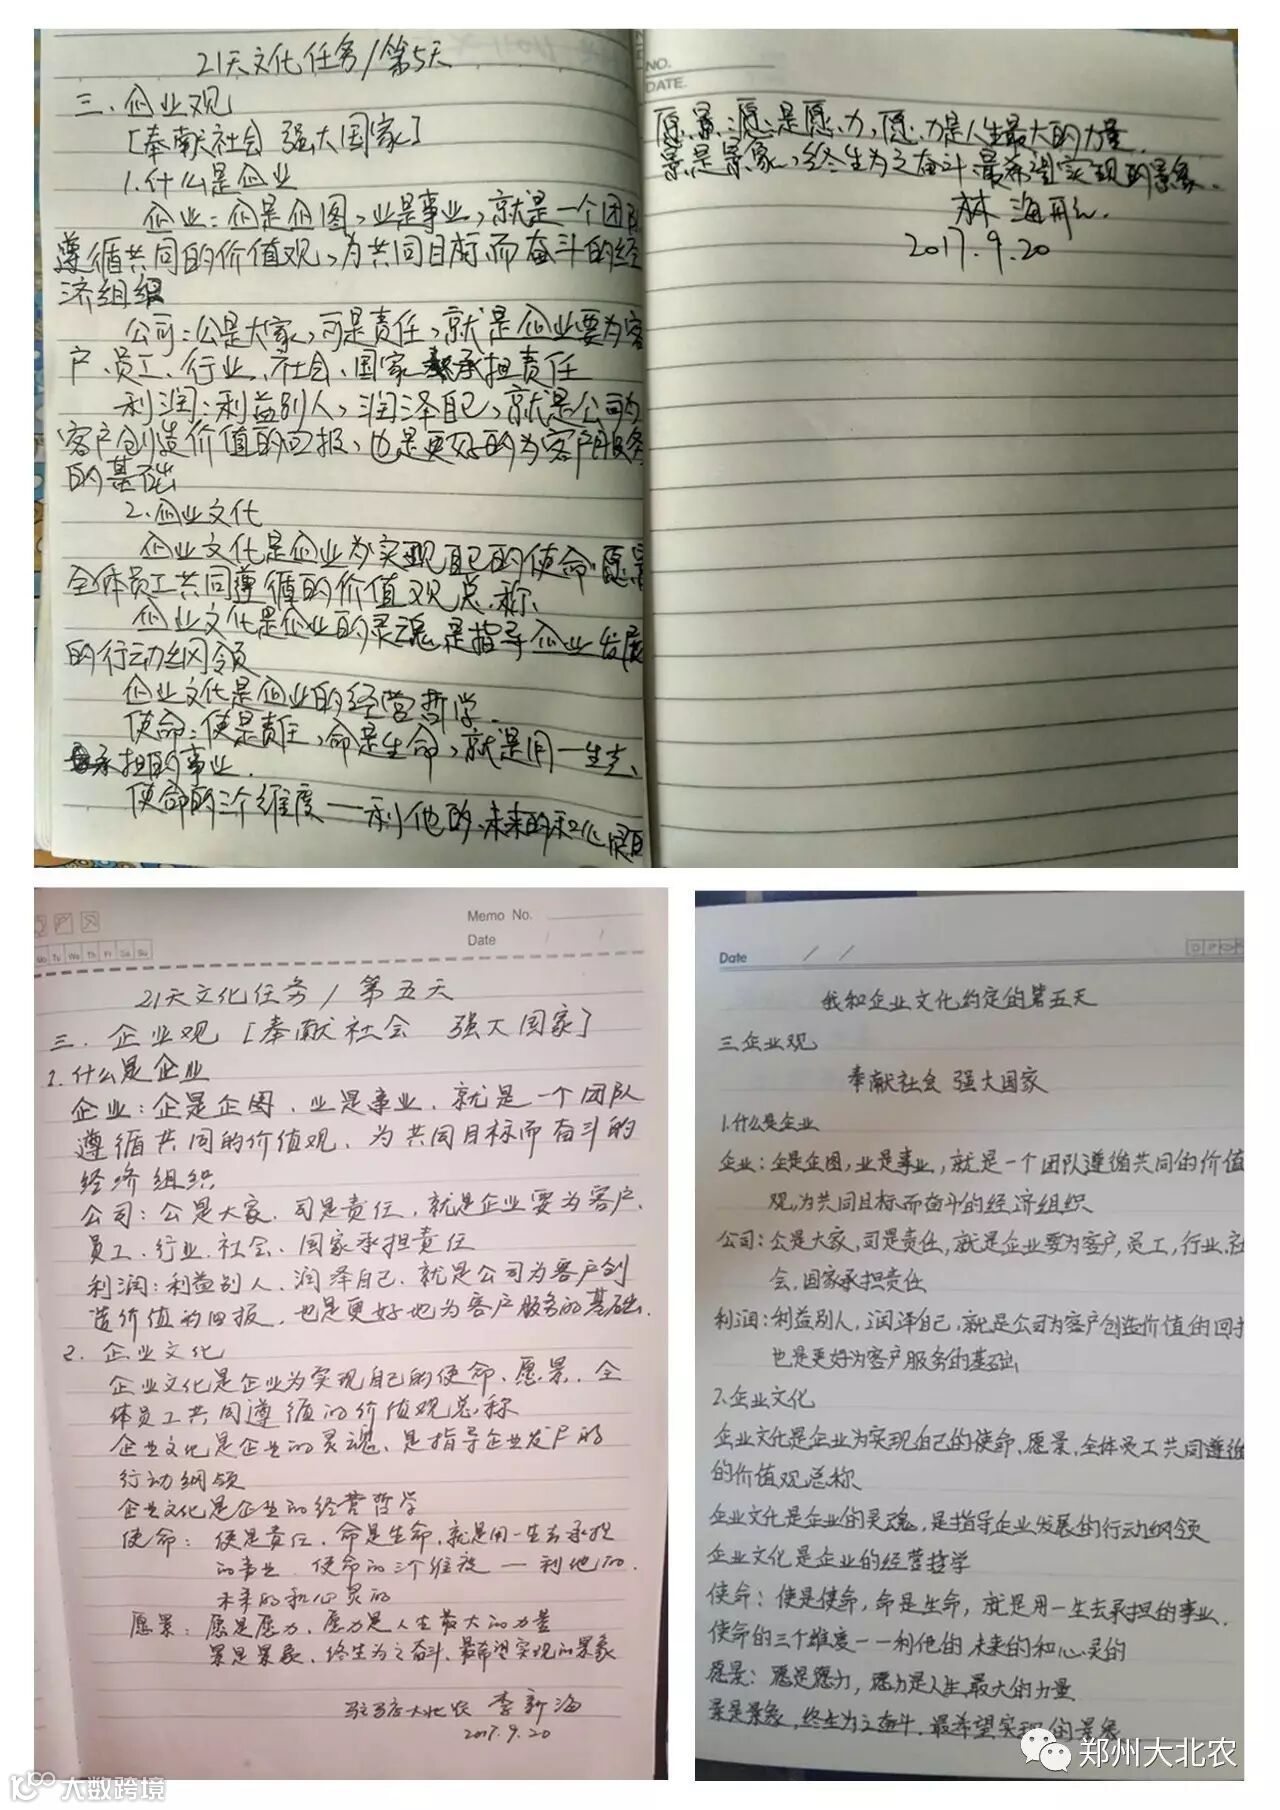 21天文化任务/第5天
三.企业观
[奉献社会 强大国家]
1.什么是企业
企业:企是企图,业是事业,就是一个团队
遵循共同的价值观,为共同目标而奋斗的经
济组织
公司:公是大家,司是责任,就是企业要为客
户、员工、行业、社会、国家承担责任
利润:利益别人,润泽自己,就是公司为
客户创造价值的回报,也是更好的为客户服务
的基础
2.企业文化
企业文化是企业为实现自己的使命.愿景
全体员工共同遵循的价值观总称
企业文化是企业的灵魂是指导企业发展
的行动纲领
企业文化是企业的经营哲学.
使命:使是责任,命是生命,就是用一生去
承担的事业.
使命的三个维度——利他的.未来的和心灵的
NO.
DATE.
愿景:愿是愿力,愿力是人生最大的力量
景是景象,终生为之奋斗.最希望实现的景象.
林海
2017.9.20
Memo No.
Date / /
Mo Tu We Th Fr Sa Su
21天文化任务/第五天
三.企业观[奉献社会 强大国家]
1.什么是企业
企业:企是企图、业是事业、就是一个团队
遵循共同的价值观、为共同目标而奋斗的
经济组织
公司:公是大家.司是责任,就是企业要为客户、
员工、行业、社会、国家承担责任
利润:利益别人、润泽自己、就是公司为客户创
造价值的回报,也是更好地为客户服务的基础.
2.企业文化
企业文化是企业为实现自己的使命、愿景、全
体员工共同遵循的价值观总称
企业文化是企业的灵魂、是指导企业发展的
行动纲领
企业文化是企业的经营哲学
使命:使是责任,命是生命,就是用一生去承担
的事业.使命的三个维度—利他的.
未来的和心灵的
愿景:愿是愿力、愿力是人生最大的力量
景是景象、终生为之奋斗、最希望实现的景象
驻马店大北农 李新海
2017.9.20
Date / /
我和企业文化约定的第五天
三.企业观
奉献社会 强大国家
1.什么是企业
企业:企是企图,业是事业,就是一个团队遵循共同的价值
观,为共同目标而奋斗的经济组织
公司:公是大家,司是责任,就是企业要为客户,员工,行业,社
会,国家承担责任
利润:利益别人,润泽自己,就是公司为客户创造价值的回报
也是更好为客户服务的基础
2.企业文化
企业文化是企业为实现自己的使命、愿景,全体员工共同遵循
的价值观总称
企业文化是企业的灵魂,是指导企业发展的行动纲领
企业文化是企业的经营哲学
使命:使是使命,命是生命,就是用一生去承担的事业.
使命的三个维度——利他的 未来的和心灵的
愿景:愿是愿力,愿力是人生最大的力量
景是景象,终生为之奋斗,最希望实现的景象
郑州大北农
大数跨境